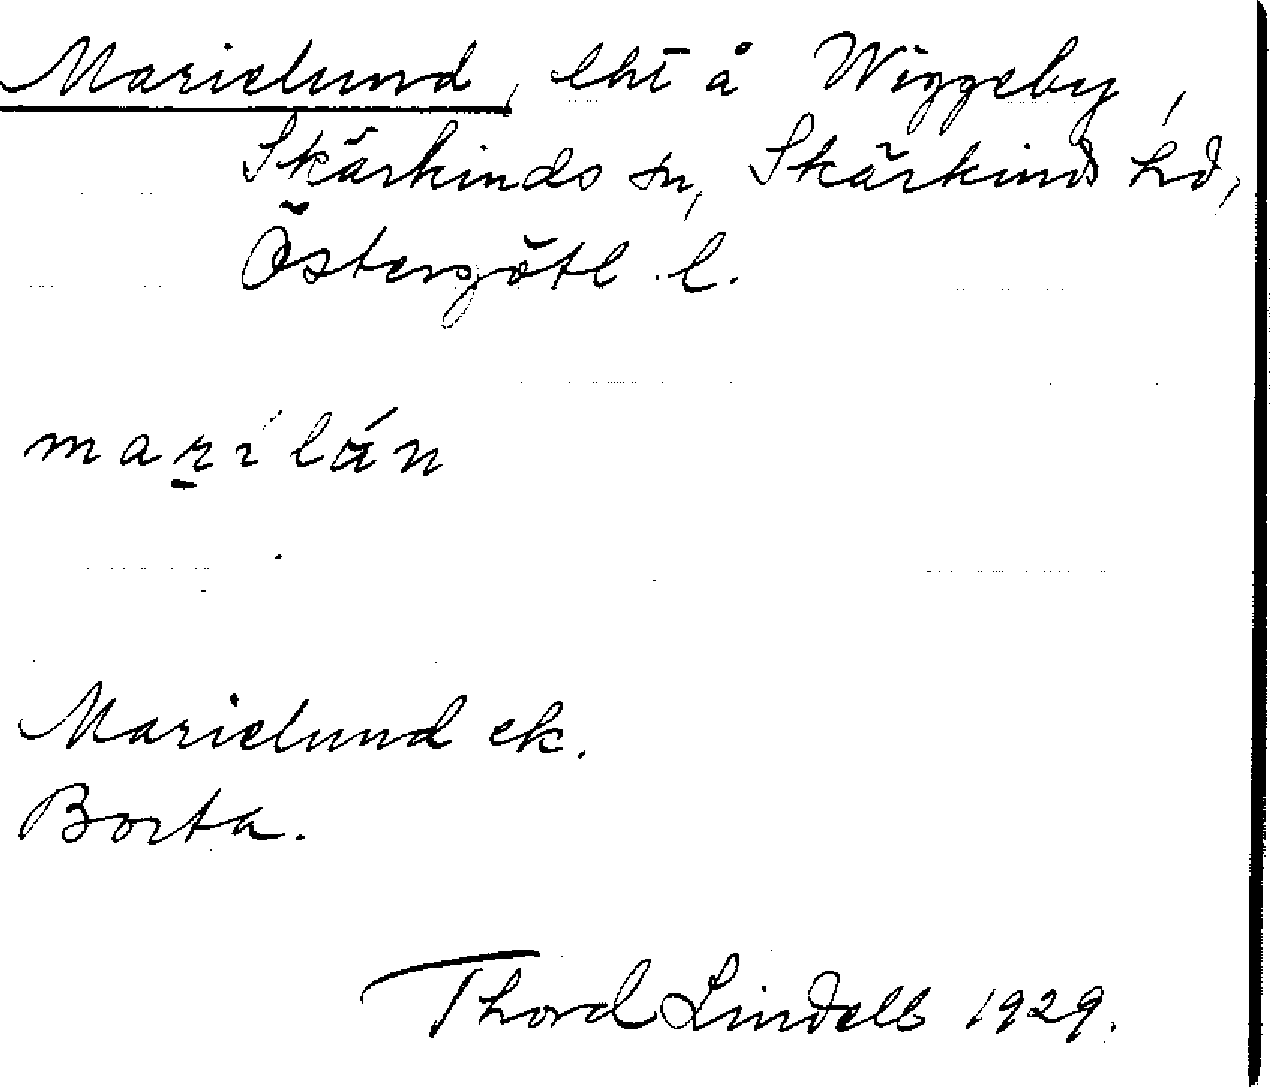 Marielund, lht å Wiggeby,
Skärkinds sn, Skärkinds hd,
Östergötl. l.
marilán
Marielund ek.
Borta.
Thord Lindell 1929.